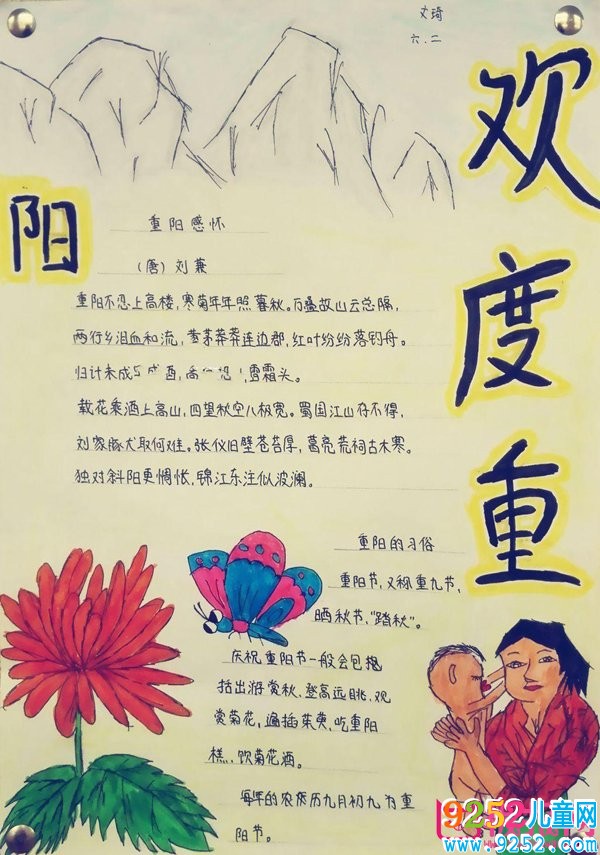 文琦
六.二
欢
度
重
阳
重阳感怀
（唐）刘兼
重阳不忍上高楼，寒菊年年照暮秋。万叠故山云总隔，
两行乡泪血和流，黄茅莽莽连边郡，红叶纷纷落钓舟。
归计未成 雪霜头。
载花乘酒上高山，四望秋空八极宽。蜀国江山存不得，
刘家豚犬取何难。张仪旧壁苍苔厚，葛亮荒祠古木寒。
独对斜阳更惆怅，锦江东注似波澜。
重阳的习俗
重阳节，又称重九节，
晒秋节、“踏秋”。
庆祝重阳节一般会包括
括出游赏秋、登高远眺、观
赏菊花，遍插茱萸、吃重阳
糕、饮菊花酒。
每年的农历九月初九为重
阳节。
9252儿童网
www.9252.com